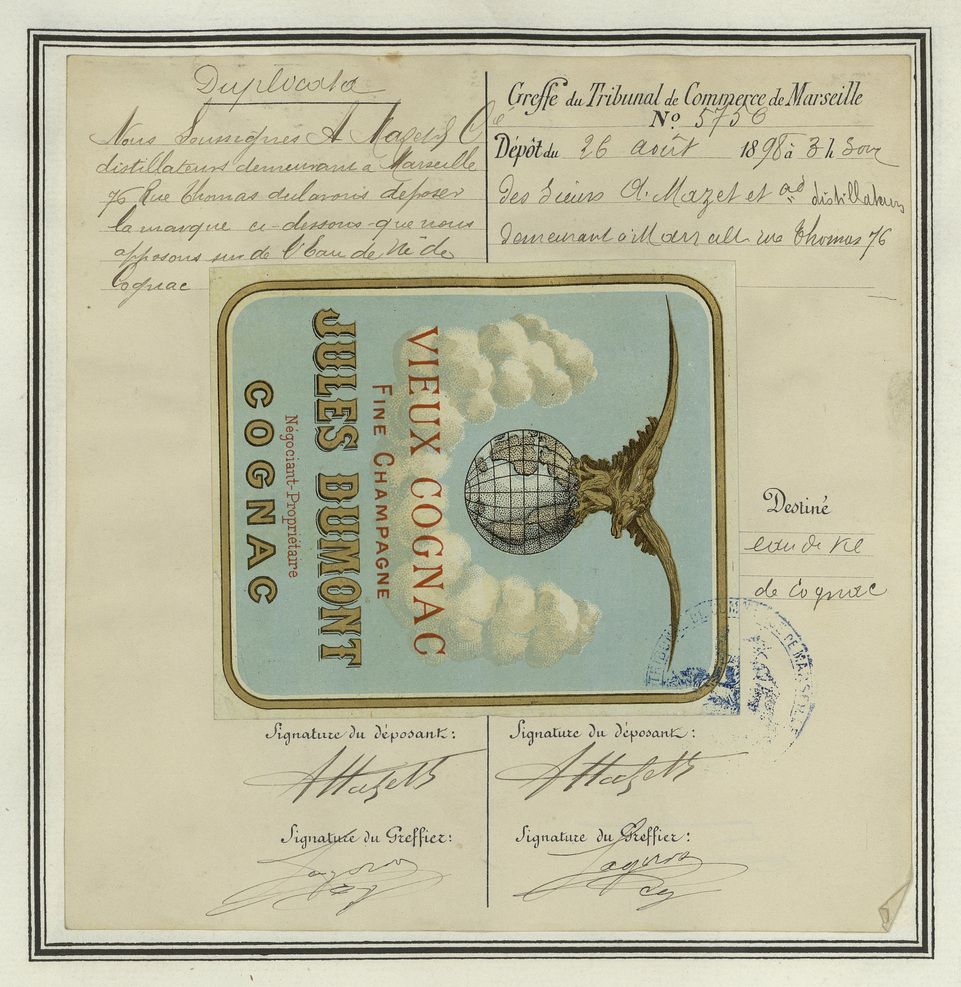 Duplicata
Nous Soussignés A Mazet & Cie
distillateurs demeurant à Marseille
76 Rue Thomas déclarons déposer
la marque ci-dessous que nous
apposons sur de l'Eau de Vie de
Cognac
Greffe du Tribunal de Commerce de Marseille
No 5756
Dépôt du 26 août 1898 à 3 h Soir
des Sieurs A. Mazet et distillateurs
demeurant à Marseille rue Thomas 76
VIEUX COGNAC
FINE CHAMPAGNE
JULES DUMONT
Négociant-Propriétaire
COGNAC
Destiné
eau de vie
de Cognac
TRIBUNAL DE COMMERCE DE MARSEILLE
Signature du déposant:
AMazet
Signature du déposant:
AMazet
Signature du Greffier:
Signature du Greffier: